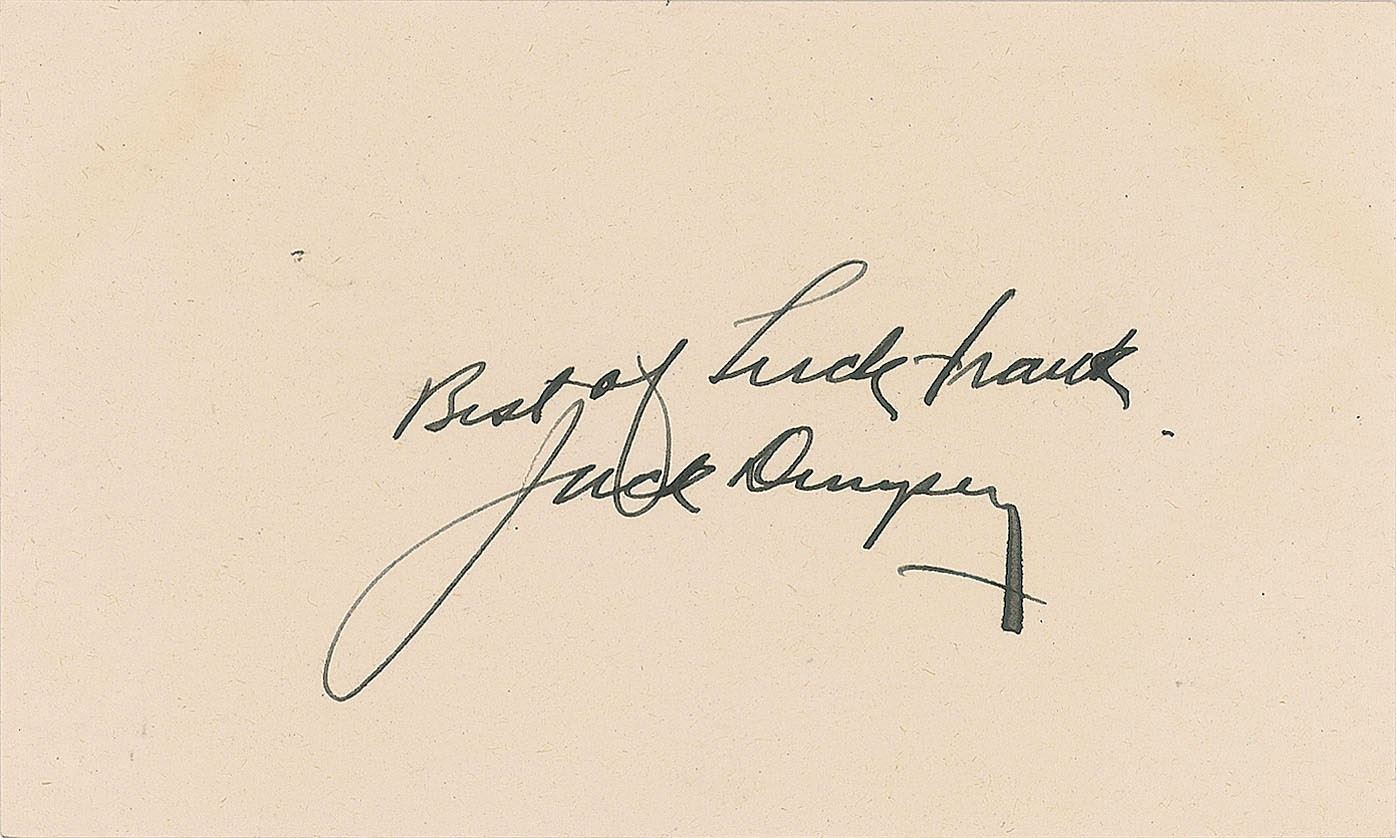 Best of Luck Frank
Jack Dempsey